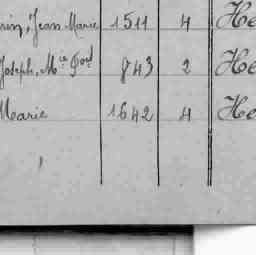 rin, Jean Marie 1511 4 He
Joseph, Mce 843 2 He
Marie 1642 4 He